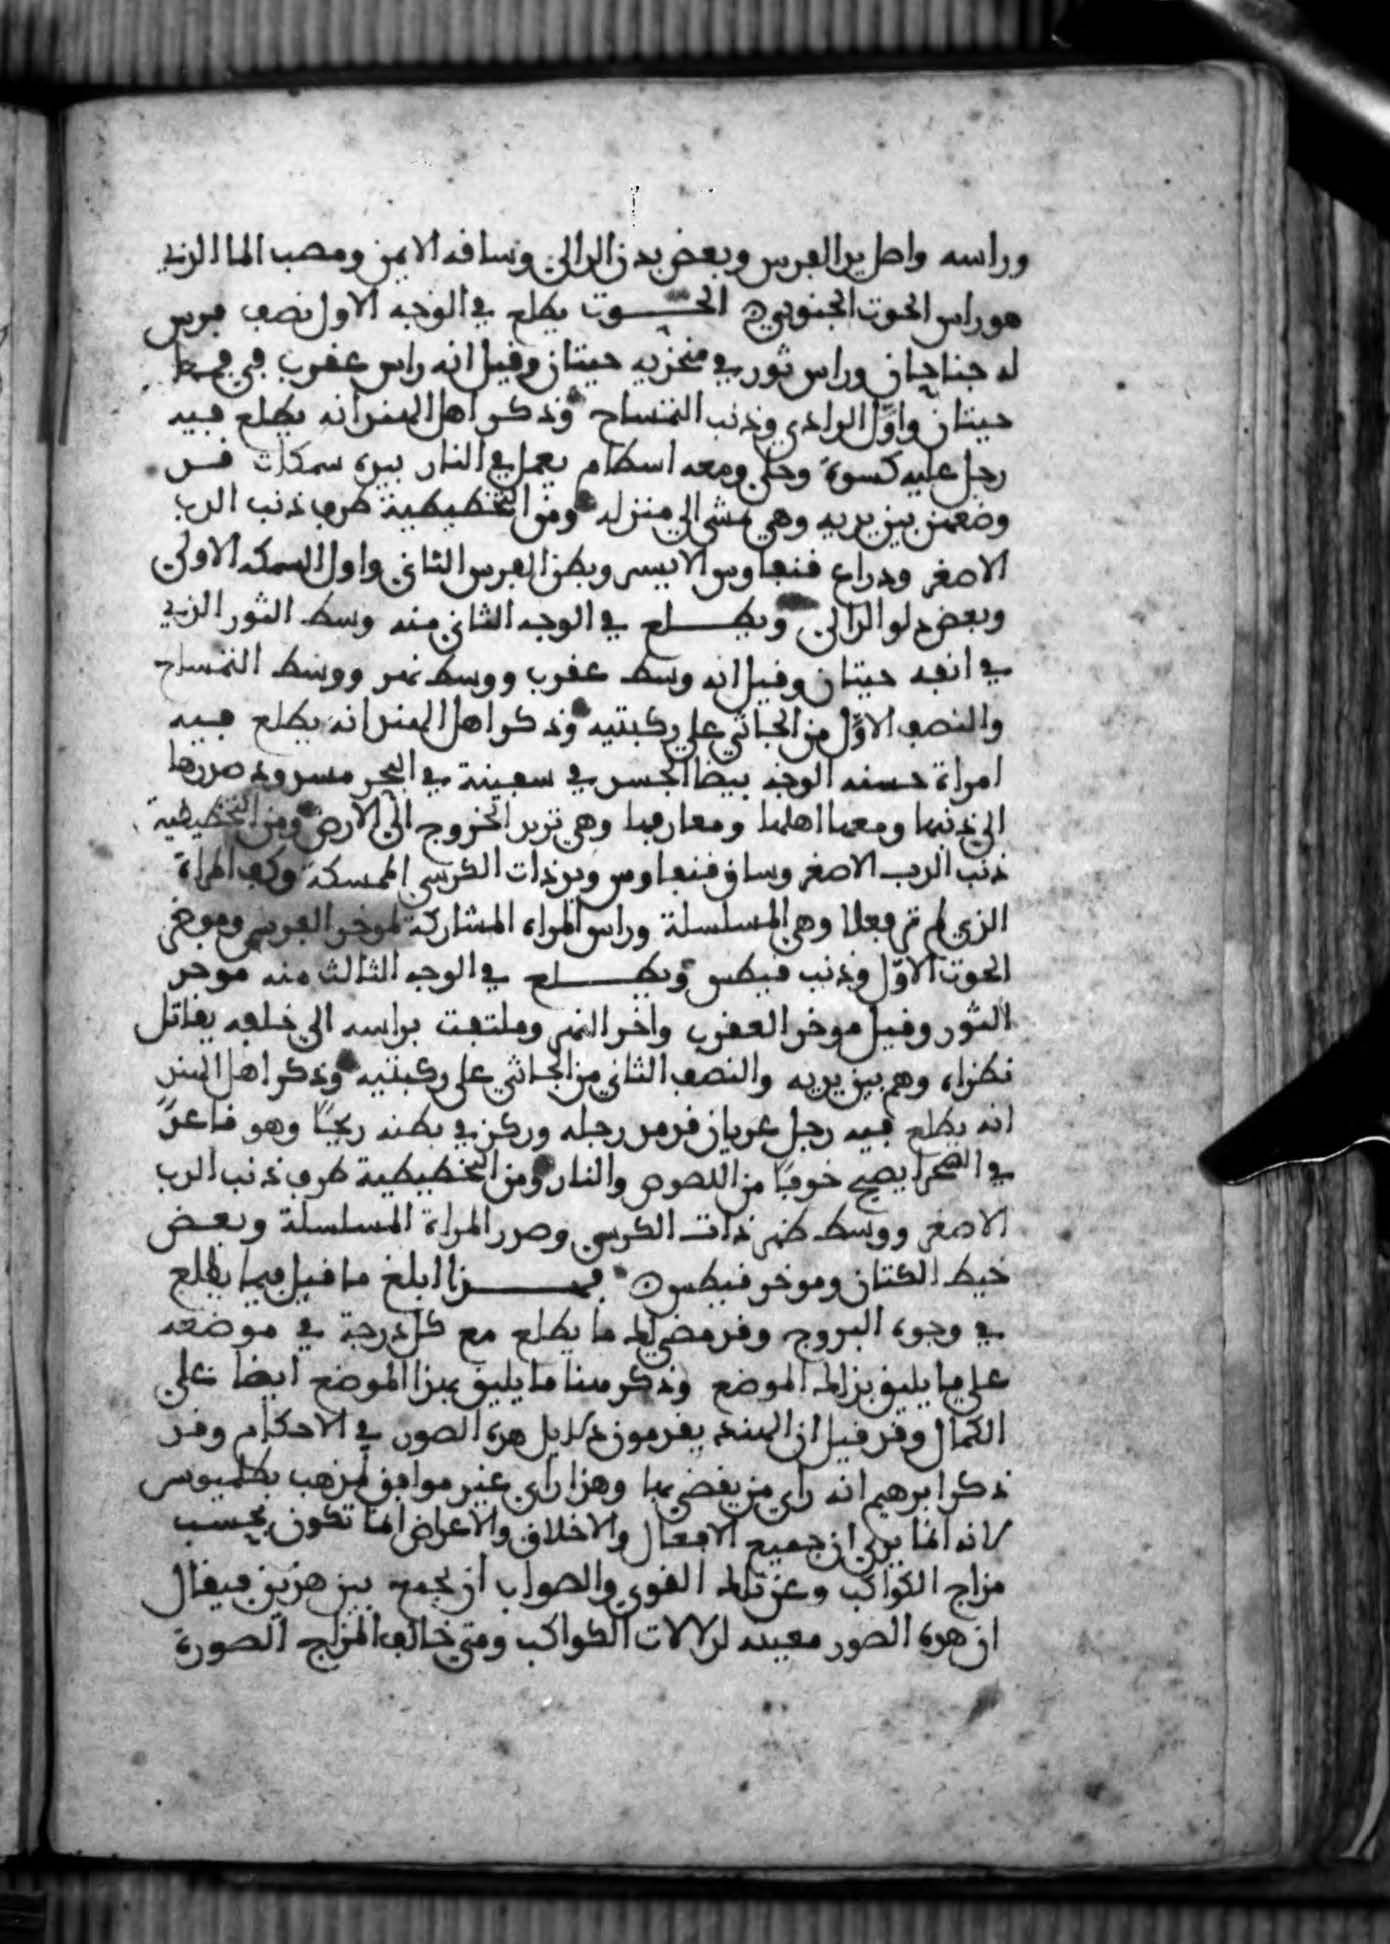 وراسه واصل يد الفرس وبعض بدن الدالي وساقه الايمن ومصب الما الذي
هو راس الحوت الجنوبي الحوت يطلع في الوجه الاول نصف فرس
له جناحان وراس ثور في منخريه حيتان وقيل انه راس عقرب في فمه
حيتان واول الوادي وذنب التمساح وذكر اهل الهند انه يطلع فيه
رجل عليه كسوة وحلي ومعه اسطام يعمل في النار بيده سمكات قد
وضعهن بين يديه وهي مشي الي منزله ومن التخطيطية طرف ذنب الدب
الاصغر وذراع قنطاوس الايسر وبطن الفرس الثاني واول السمكه الاولي
وبعض دلو الدالي ويطلع في الوجه الثاني منه وسط الثور الذي
في انفه حيتان وقيل انه وسط عقرب ووسط نمر ووسط التمساح
والنصف الاول من الجاثي علي ركبتيه وذكر اهل الهند انه يطلع فيه
امراة حسنه الوجه بيضا الجسد في سفينة في البحر مسرود صدرها
الي ذنبها ومعها اهلها ومعارفها وهي تريد الخروج الي الارض ومن التخطيطية
ذنب الدب الاصغر وساق قنطاوس ويد ذات الكرسي الممسكة وكف المراة
الذي لم تر فعلا وهي المسلسلة وراس المراه المشاركة لموخر الفرس وموخر
الحوت الاول وذنب قيطس ويطلع في الوجه الثالث منه موخر
الثور وقيل موخر العقرب واخر النمر وملتفت براسه الي خلفه يقاتل
نظراه وهم بين يديه والنصف الثاني من الجاثي علي ركبتيه وذكر اهل الهند
انه يطلع فيه رجل عريان قد مد رجله وركز في بطنه رمحا وهو قاعد
في الصحرا يصيح خوفا من اللصوص والنار ومن التخطيطية طرف ذنب الدب
الاصغر ووسط ظهر ذات الكرسي وصدر المراة المسلسلة وبعض
خيط الكتان وموخر قيطس فهذا ابلغ ما قيل فيما يطلع
في وجوه البروج وقد مضي لك ما يطلع مع كل درجة في موضعه
علي ما يليق بذلك الموضع وذكر هنا ما يليق بهذا الموضع ايضا علي
الكمال وقد قيل ان الهند يقدمون دلايل هذه الصور في الاحكام وقد
ذكر ابرهيم انه راي من يقضي بها وهذا راي غير موافق لمذهب بطلميوس
لانه انما يري ان جميع الافعال والاخلاق والاعراض انما تكون بحسب
مزاج الكواكب وعن تلك القوي والصواب ان يجمع بين هذين فيقال
ان هذه الصور معينه لدلالات الكواكب ومتي خالف المزاج الصورة